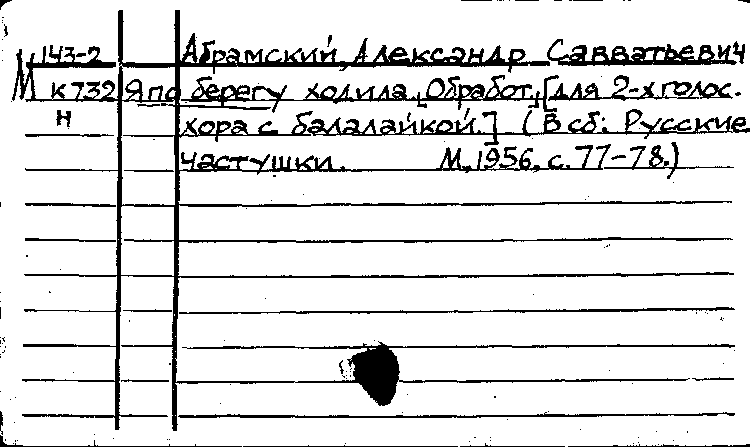 143-2 Абрамский, Александр Савватьевич
М К732 Я по берегу ходила. Обработ. [для 2-х голос.
Н хора с балалайкой.] (В сб: Русские
частушки. М, 1956, с. 77-78.)